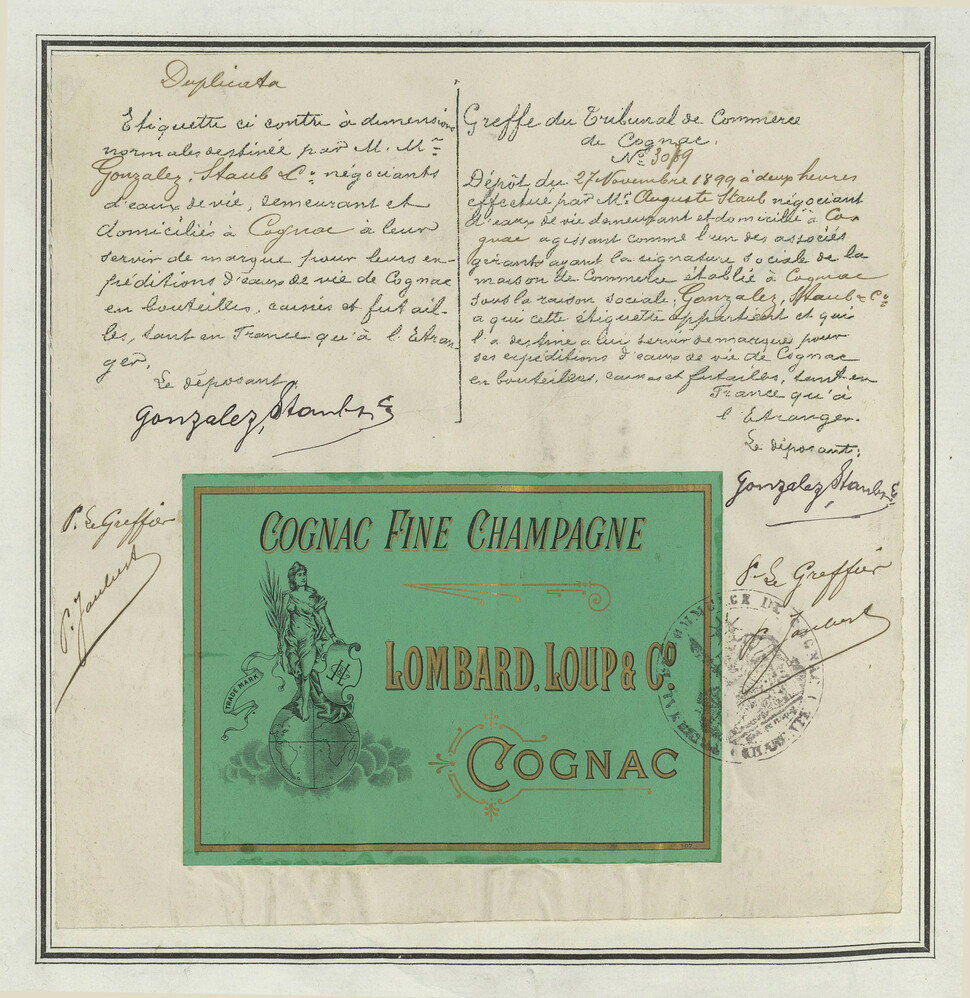 Duplicata
Etiquette ci contre à dimensions
normales destinée par M. Mrs
Gonzalez, Staub & Co négociants
d'eaux de vie, demeurant et
domiciliés à Cognac à leur
servir de marque pour leurs ex-
péditions d'eaux de vie de Cognac
en bouteilles, caisses et futail-
les, tant en France qu'à l'Etran-
ger.
Le déposant,
Gonzalez, Staub & Co
Greffe du Tribunal de Commerce
de Cognac.
No 3069
Dépôt du 27 Novembre 1899 à deux heures
effectué par Mr Auguste Staub négociant
d'eaux de vie demeurant et domicilié à Co-
gnac agissant comme l'un des associés
gérants ayant la signature sociale de la
maison de Commerce établie à Cognac
sous la raison sociale, Gonzalez, Staub & Co
a qui cette étiquette appartient et qui
l'a destiné a lui servir de marque pour
ses expéditions d'eaux de vie de Cognac
en bouteilles, caisses et futailles, tant en
France qu'à
l'Etranger.
Le déposant,
Gonzalez, Staub & Co
P. Le Greffier
P. Jaubert
P. Le Greffier
P. Jaubert
COGNAC FINE CHAMPAGNE
TRADE MARK
LOMBARD, LOUP & Co
COGNAC
COMMERCE DE COGNAC